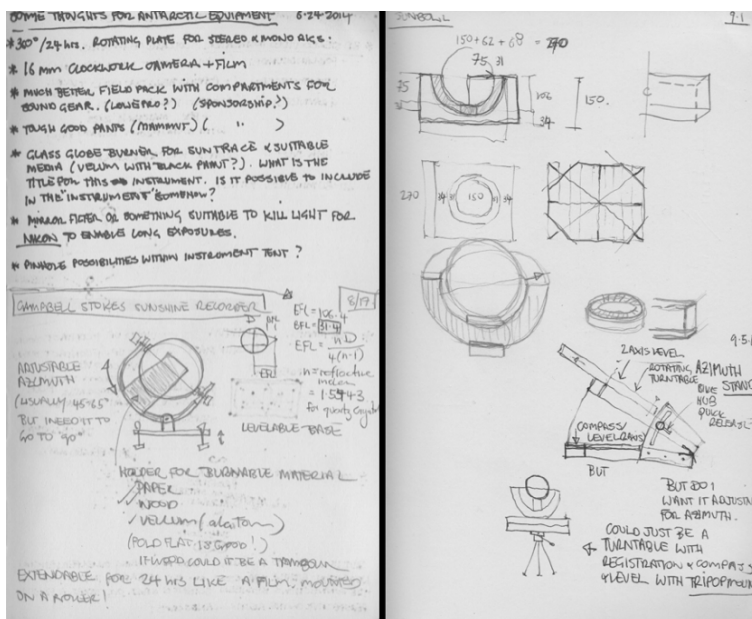 SOME THOUGHTS FOR ANTARCTIC EQUIPMENT 6·24·2014
* 360°/24 hrs. ROTATING PLATE FOR STEREO & MONO RIGS.
* 16 mm CLOCKWORK CAMERA + FILM
* MUCH BETTER FIELD PACK WITH COMPARTMENTS FOR
SOUND GEAR. (LOWEPRO?) (SPONSORSHIP?)
* TOUGH GOOD PANTS (MAMMUT) ( " )
* GLASS GLOBE BURNER FOR SUN TRACE & SUITABLE
MEDIA (VELUM WITH BLACK PAINT?). WHAT IS THE
TITLE FOR THIS INSTRUMENT. IS IT POSSIBLE TO INCLUDE
IN THE "INSTRUMENT" SOMEHOW?
* MIRROR FILTER OR SOMETHING SUITABLE TO KILL LIGHT FOR
NIKON TO ENABLE LONG EXPOSURES.
* PINHOLE POSSIBILITIES WITHIN INSTRUMENT TENT?
CAMPBELL STOKES SUNSHINE RECORDER
8/19
EFL = 106.4
BFL = 31.4
EFL = nD
4(n-1)
n = reflective
index
= 1.5443
for quartz crystal
D
EFL
ADJUSTABLE
AZIMUTH
(USUALLY 45-65°
BUT I NEED IT TO
GO TO 90°
LEVELABLE BASE
HOLDER FOR BURNABLE MATERIAL
✓ PAPER
✓ WOOD
✓ VELLUM
(FOLD FLAT IS GOOD!)
COULD IT BE A
EXTENDABLE FOR 24 HRS LIKE A FILM, MOUNTED
ON A ROLLER!
SUNBOWL
9.1
150+62+68 = 270
75 31
75
31
106
34
150.
C
270
34 31 150 31 34
9.5.1
2 AXIS LEVEL
ROTATING AZIMUTH
TURNTABLE
STAND
HUB
QUICK
COMPASS/
LEVEL
BUT
BUT DO I
WANT IT
FOR AZIMUTH.
COULD JUST BE A
TURNTABLE WITH
REGISTRATION & COMPASS
& LEVEL WITH TRIPOD MOUNT